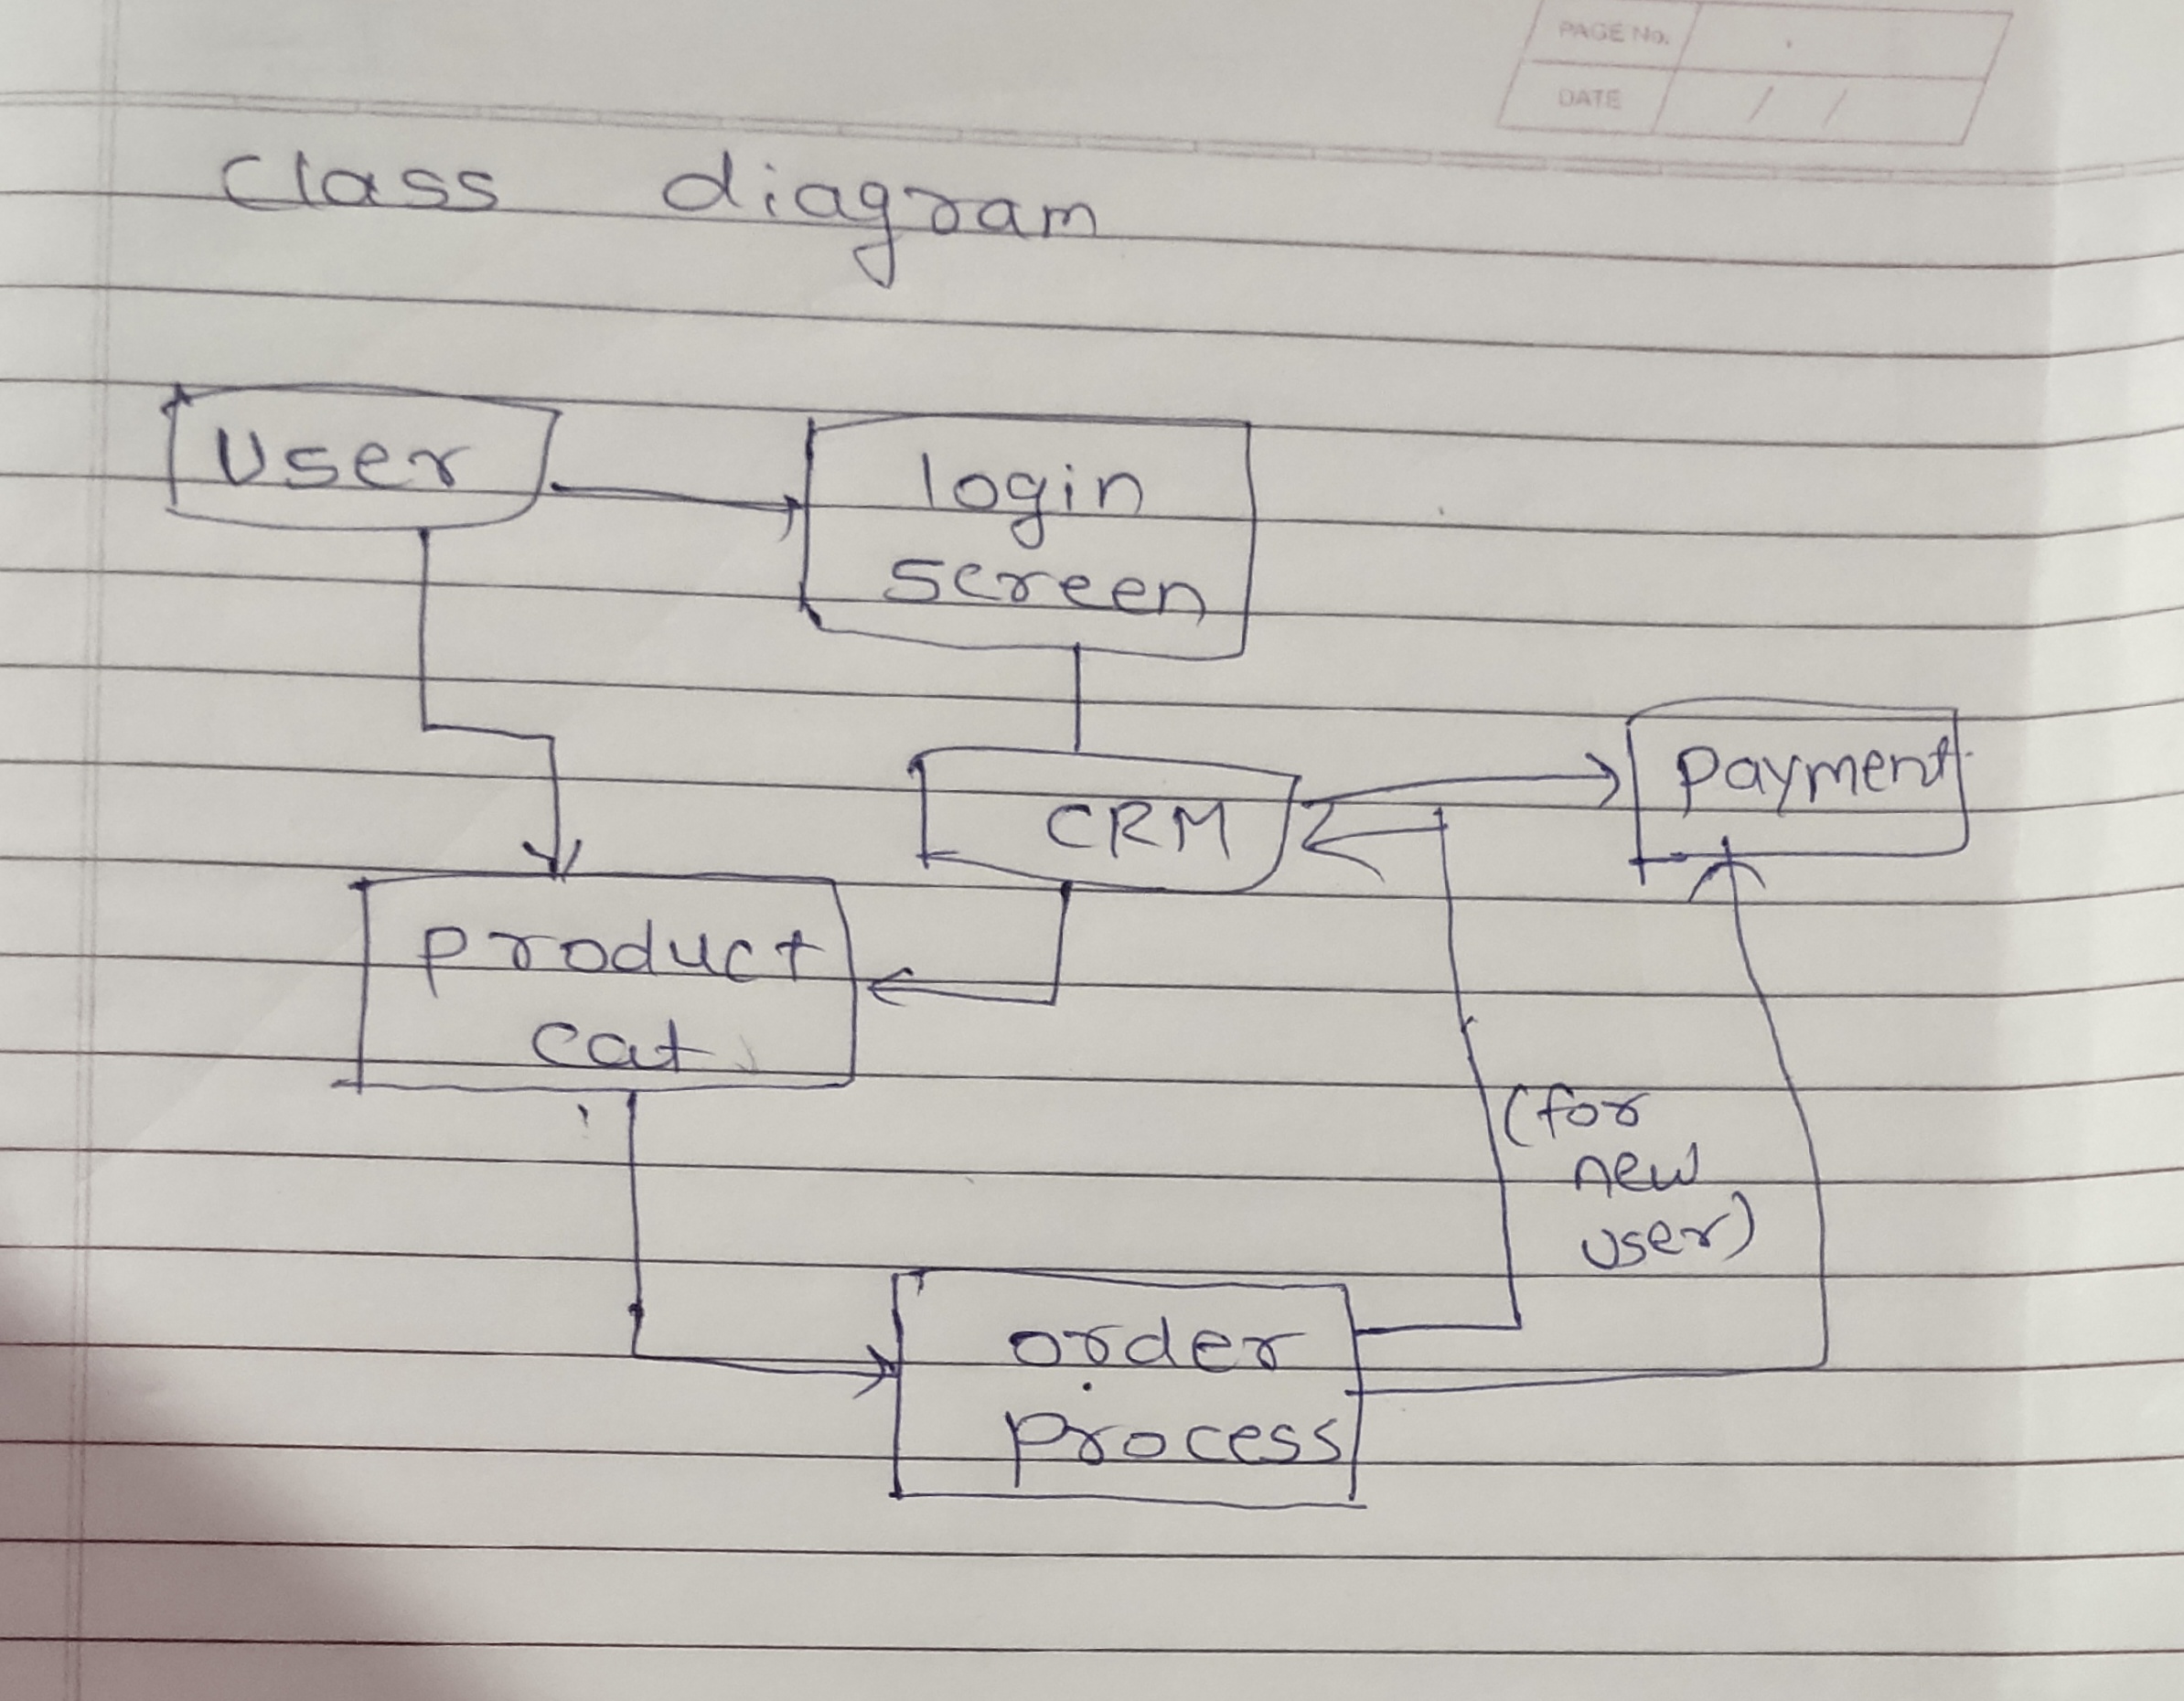 PAGE No.
DATE / /
class diagram
User
login
screen
payment
CRM
product
cat
(for
new
user)
order
process